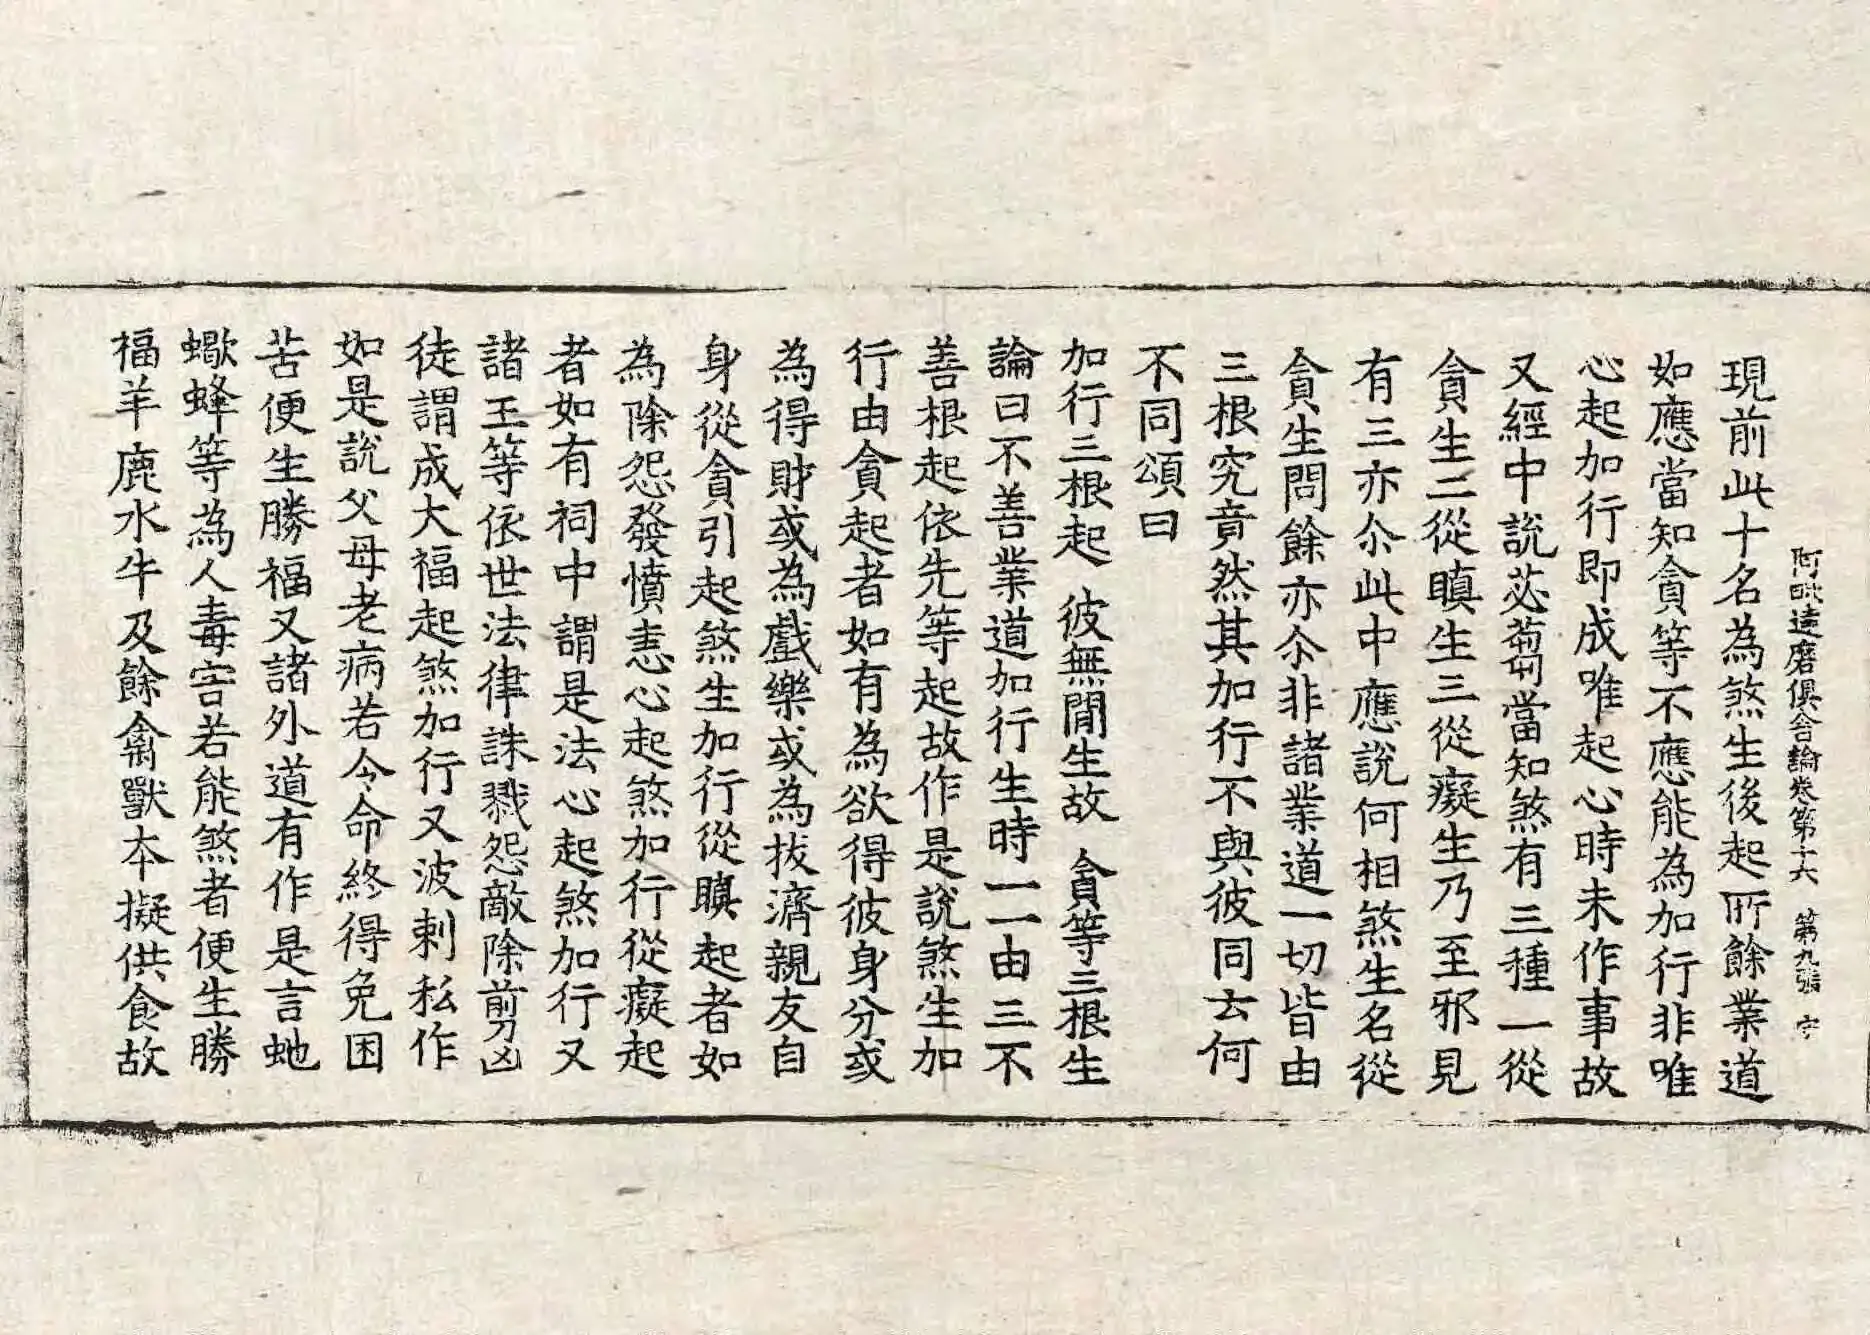 阿毗達磨俱舍論卷第十六 第九張 守
現前此十名為煞生後起所餘業道
如應當知貪等不應能為加行非唯
心起加行即成唯起心時未作事故
又經中説苾蒭當知煞有三種一從
貪生二從瞋生三從癡生乃至邪見
有三亦尒此中應說何相煞生名從
貪生問餘亦尒非諸業道一切皆由
三根究竟然其加行不與彼同去何
不同頌曰
加行三根起 彼無閒生故 貪等三根生
論曰不善業道加行生時一一由三不
善根起依先等起故作是說煞生加
行由貪起者如有為欲得彼身分或
為得財或為戲樂或為拔濟親友自
身從貪引起煞生加行從瞋起者如
為除怨發憤恚心起煞加行從癡起
者如有祠中謂是法心起煞加行又
諸王等依世法律誅戮怨敵除剪凶
徒謂成大福起煞加行又波剌私作
如是說父母老病若令命終得免困
苦便生勝福又諸外道有作是言虵
蠍蜂等為人毒害若能煞者便生勝
福羊鹿水牛及餘禽獸本擬供食故